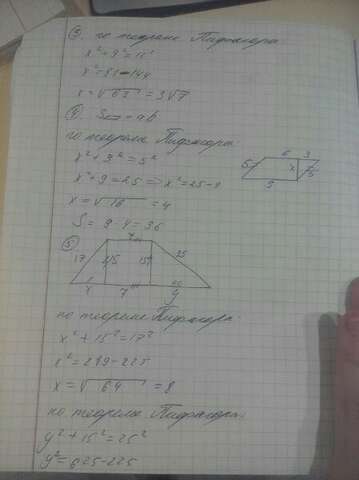 ③ по теореме Пифагора:
x² + 9² = 12²
x² = 81 - 144
x = √63 = 3√7
④ S▱ = ab
по теореме Пифагоры:
6 3
5 x 5
9
x² + 3² = 5²
x² + 9 = 25 => x² = 25 - 9
x = √16 = 4
S = 9 · 4 = 36
⑤ 7
17 15 15 25
x 7 20
y
по теореме Пифагора:
x² + 15² = 17²
x² = 289 - 225
x = √64 = 8
по теореме Пифагора:
y² + 15² = 25²
y² = 625 - 225